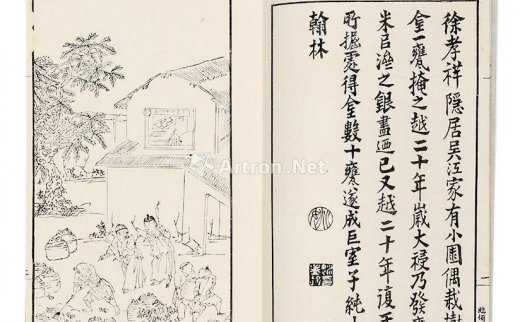 徐孝祥隱居吳江家有小園偶栽樹
金一甕掩之越二十年歲大祲乃發
米㠯濟之銀盡迺已又越二十年復
所處得金數十甕遂成巨室子純
翰林
Artron.Net